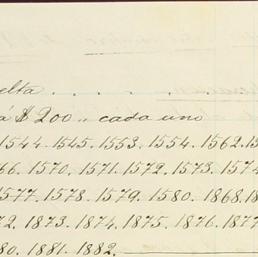 elta . . . . .
á $ 200 " cada uno
1544. 1545. 1553. 1554. 1562. 15
66. 1570. 1571. 1572. 1573. 1574
1577. 1578. 1579. 1580. 1868. 18
72. 1873. 1874. 1875. 1876. 1877
80. 1881. 1882.